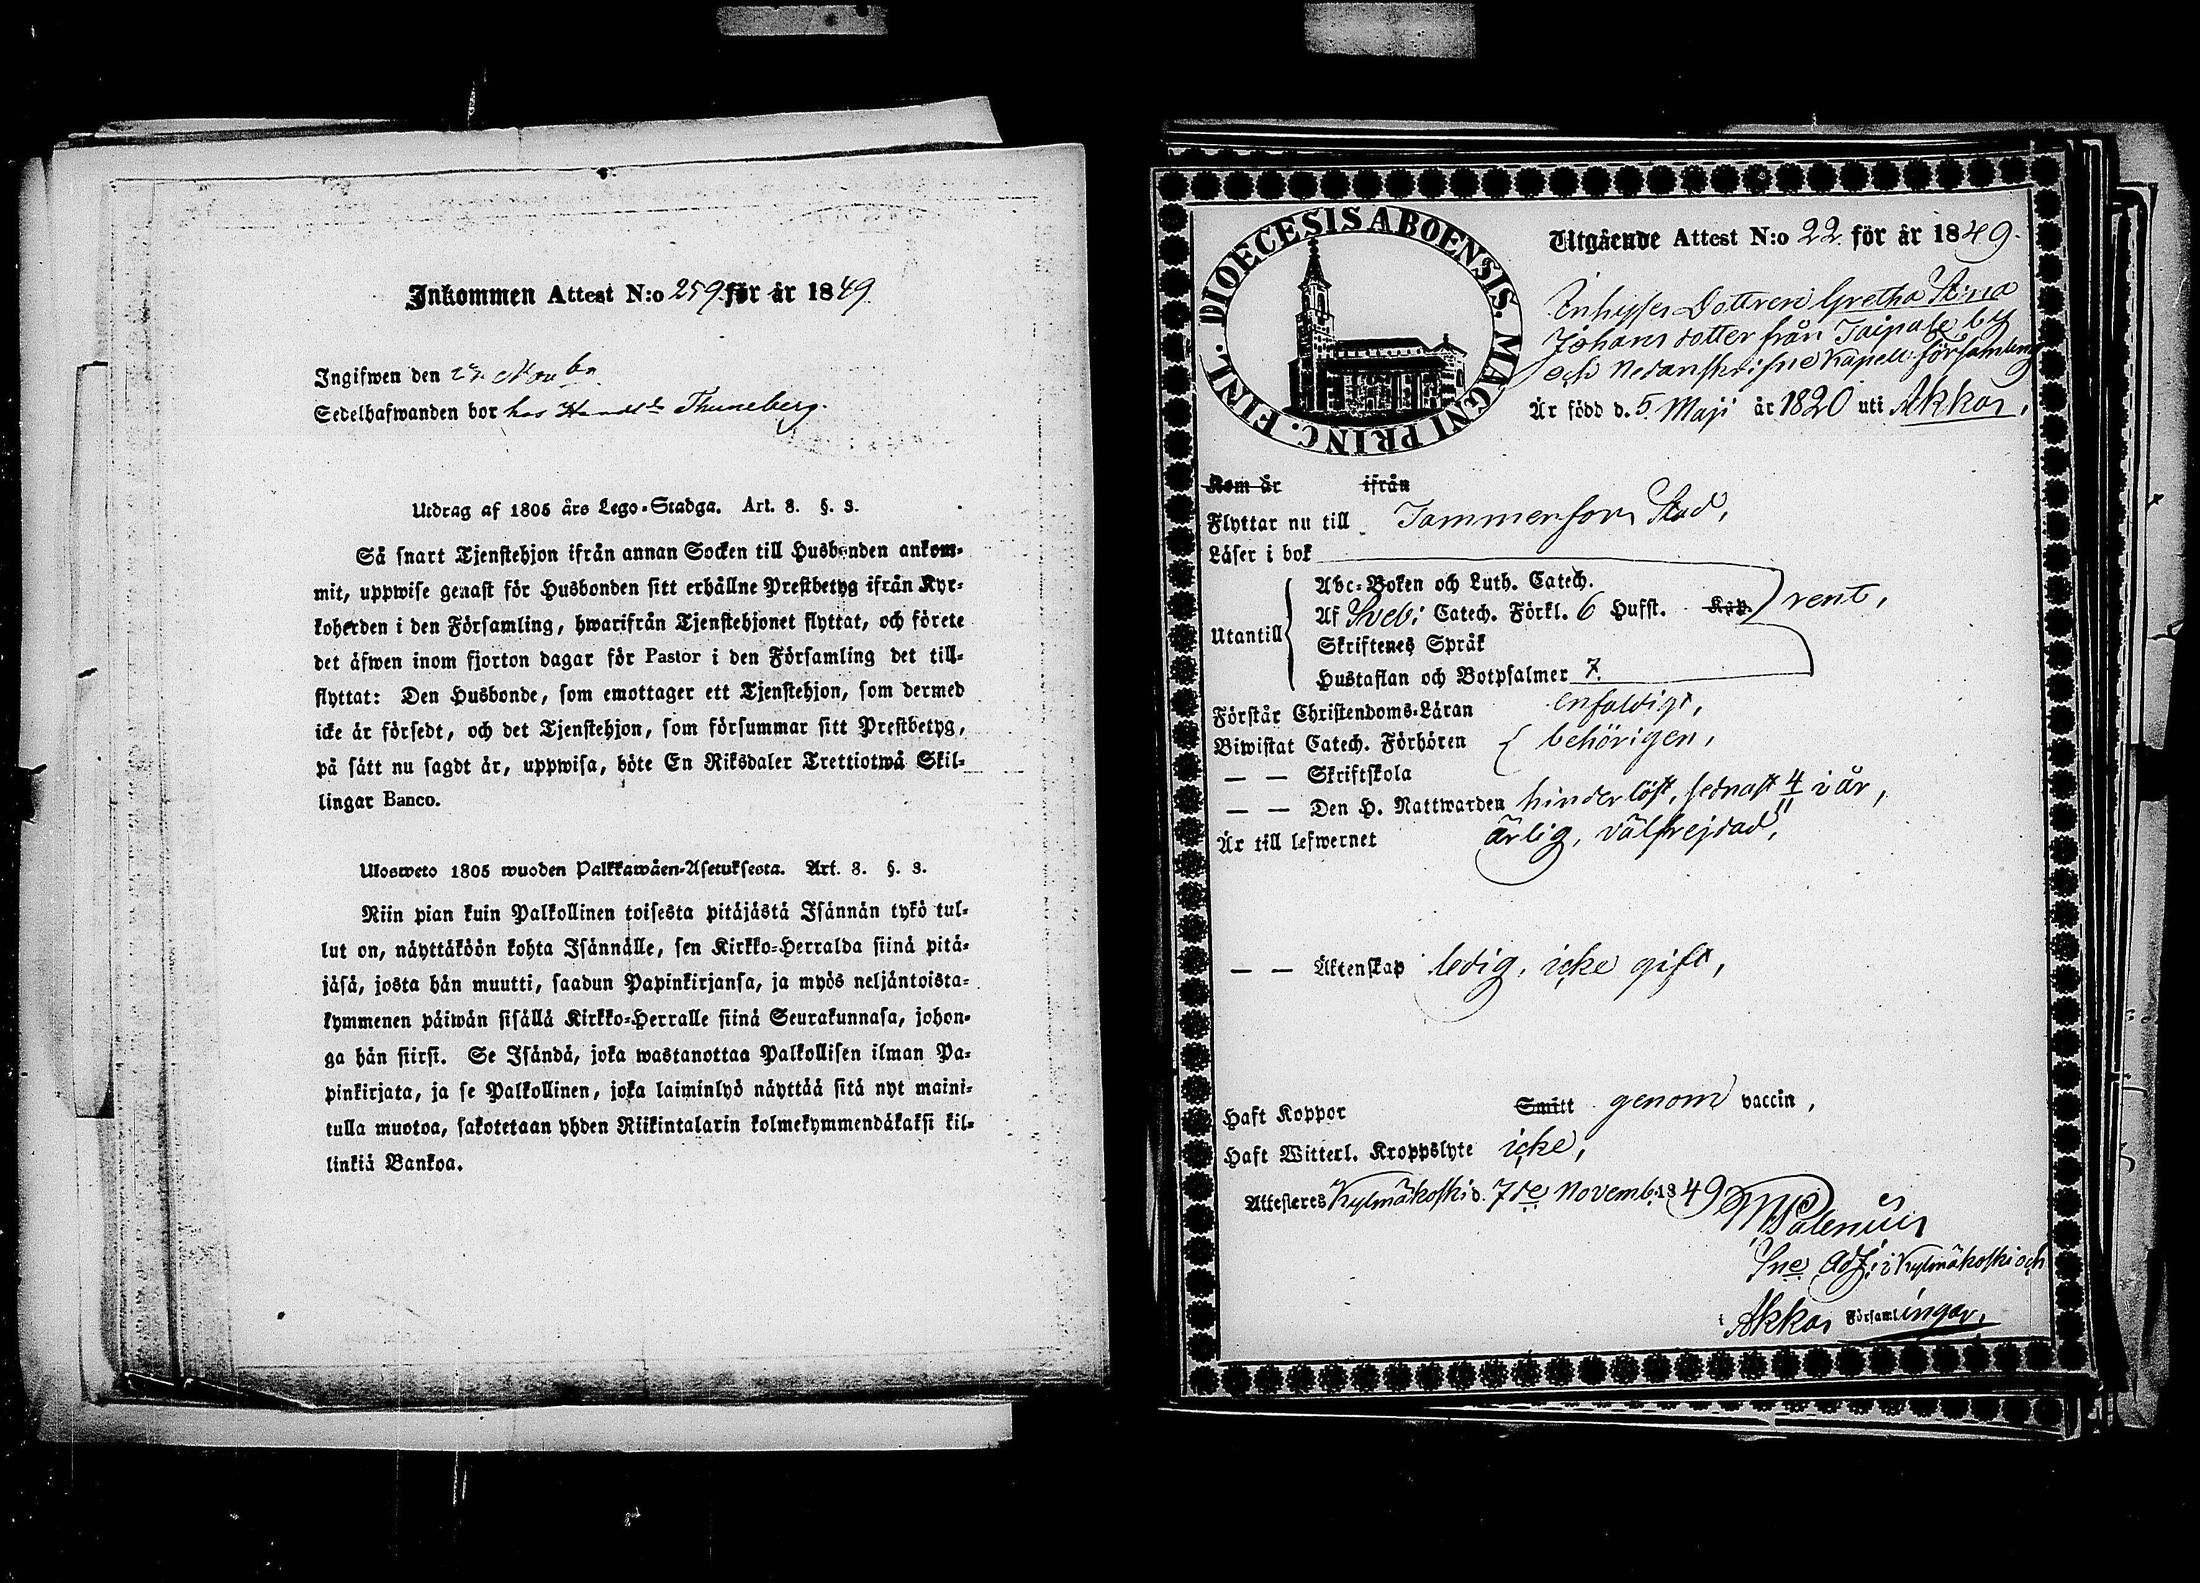 Inkommen Attest N:o 259 för år 1849.
Ingifwen den 27 Novbr
Sedelhafwanden bor hos Handl. Thuneberg.
Utdrag af 1805 års Lego-Stadga. Art. 8. §. 3.
Så snart Tjenstehjon ifrån annan Socken till Husbonden ankom-
mit, uppwise genast för Husbonden sitt erhållne Prestbetyg ifrån Kyr-
koherden i den Församling, hwarifrån Tjenstehjonet flyttat, och förete
det äfwen inom fjorton dagar för Pastor i den Församling det till-
flyttat: Den Husbonde, som emottager ett Tjenstehjon, som dermed
icke är försedt, och det Tjenstehjon, som försummar sitt Prestbetyg,
på sätt nu sagdt är, uppwisa, böte En Riksdaler Trettiotwå Skil-
lingar Banco.
Ulosweto 1805 wuoden Palkkawäen-Asetuksesta. Art. 8. §. 3.
Niin pian kuin Palkollinen toisesta pitäjästä Isännän tykö tul-
lut on, näyttäköön kohta Isännälle, sen Kirkko-Herralda siinä pitä-
jäsä, josta hän muutti, saadun Papinkirjansa, ja myös neljäntoista-
kymmenen päiwän sisällä Kirkko-Herralle siinä Seurakunnasa, johon-
ga hän siirsi. Se Isändä, joka wastanottaa Palkollisen ilman Pa-
pinkirjata, ja se Palkollinen, joka laiminlyö näyttää sitä nyt maini-
tulla muotoa, sakotetaan yhden Riikintalarin kolmekymmendäkaksi kil-
linkiä Bankoa.
DIOECESIS ABOENSIS. MAGNI PRINC. FINL.
Utgående Attest N:o 22 för år 1849.
Inhyses Dottren Gretha Stina
Johansdotter från Taipale by
och nedanskrifne Kapell församling
Är född d. 5 Maji år 1820 uti Akkas,
Kom år ifrån
Flyttar nu till Tammerfors Stad,
Läser i bok
Abc-Boken och Luth. Catech.
Utantill Af Sveb: Catech. Förkl. 6 Hufst. Kap. rent,
Skriftenes Språk
Hustaflan och Botpsalmer 7.
Förstår Christendoms-Läran enfaldigt,
Biwistat Catech. Förhören behörigen,
— — Skriftskola
— — Den H. Nattwarden hinderlöst, sednast 4/11 i år,
Är till lefwernet ärlig, välfrejdad,
— — Äktenskap ledig, icke gift,
Haft Koppor Smitt genom vaccin,
Haft Witterl. Kroppslyte icke,
Attesteres Kylmäkoski d. 7de Novemb. 1849
Palenius
Sne Adj: i Kylmäkoski och
i Akkas Församlingar,